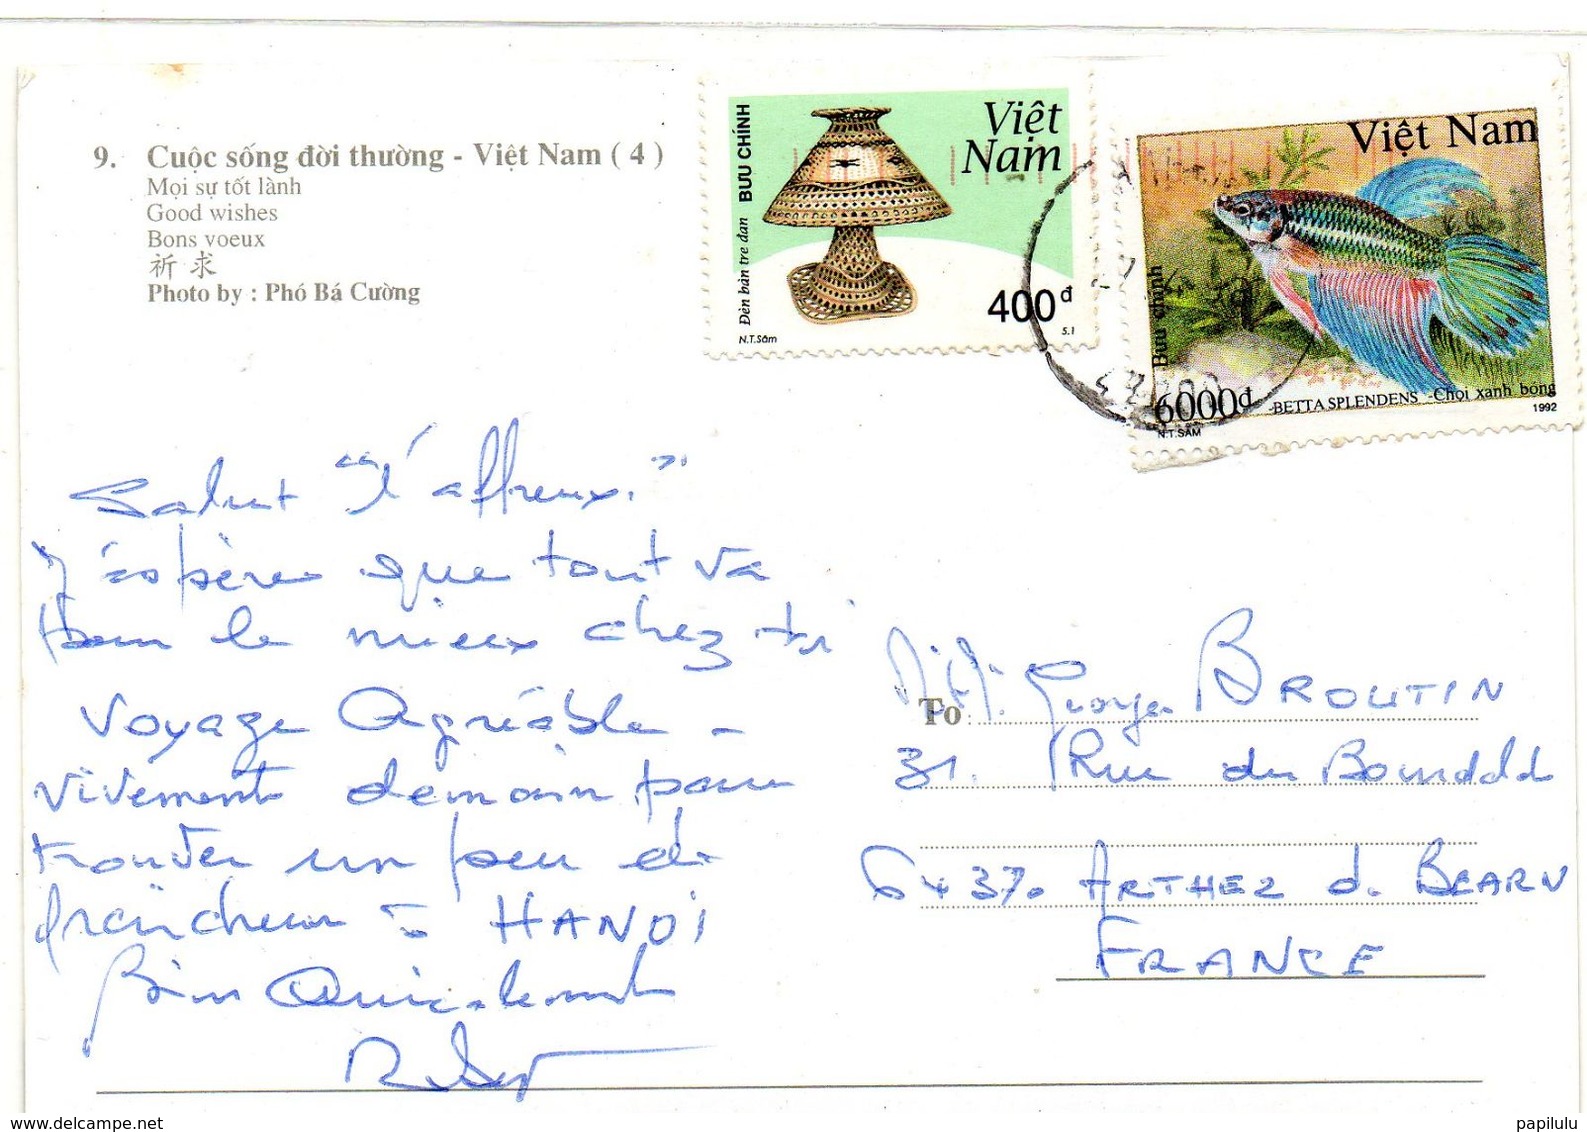 9. Cuộc sống đời thường - Việt Nam ( 4 )
Mọi sự tốt lành
Good wishes
Bons voeux
祈 求
Photo by : Phó Bá Cường
Việt
Nam
BƯU CHÍNH
Đèn bàn tre đan
400đ
N.T.Sâm
5.1
Việt Nam
Bưu chính
6000đ
BETTA SPLENDENS - Chọi xanh bóng
N.T.SÂM
1992
Salut "l'affreux."
J'éspère que tout va
pour le mieux chez toi
Voyage Agréable -
vivement demain pour
trouver un peu de
fraîcheur à HANOI
Bien Amicalement
To
M. Georges BROUTIN
31. Rue du
64370 ARTHEZ de BEARN
FRANCE
www.delcampe.net
papilulu